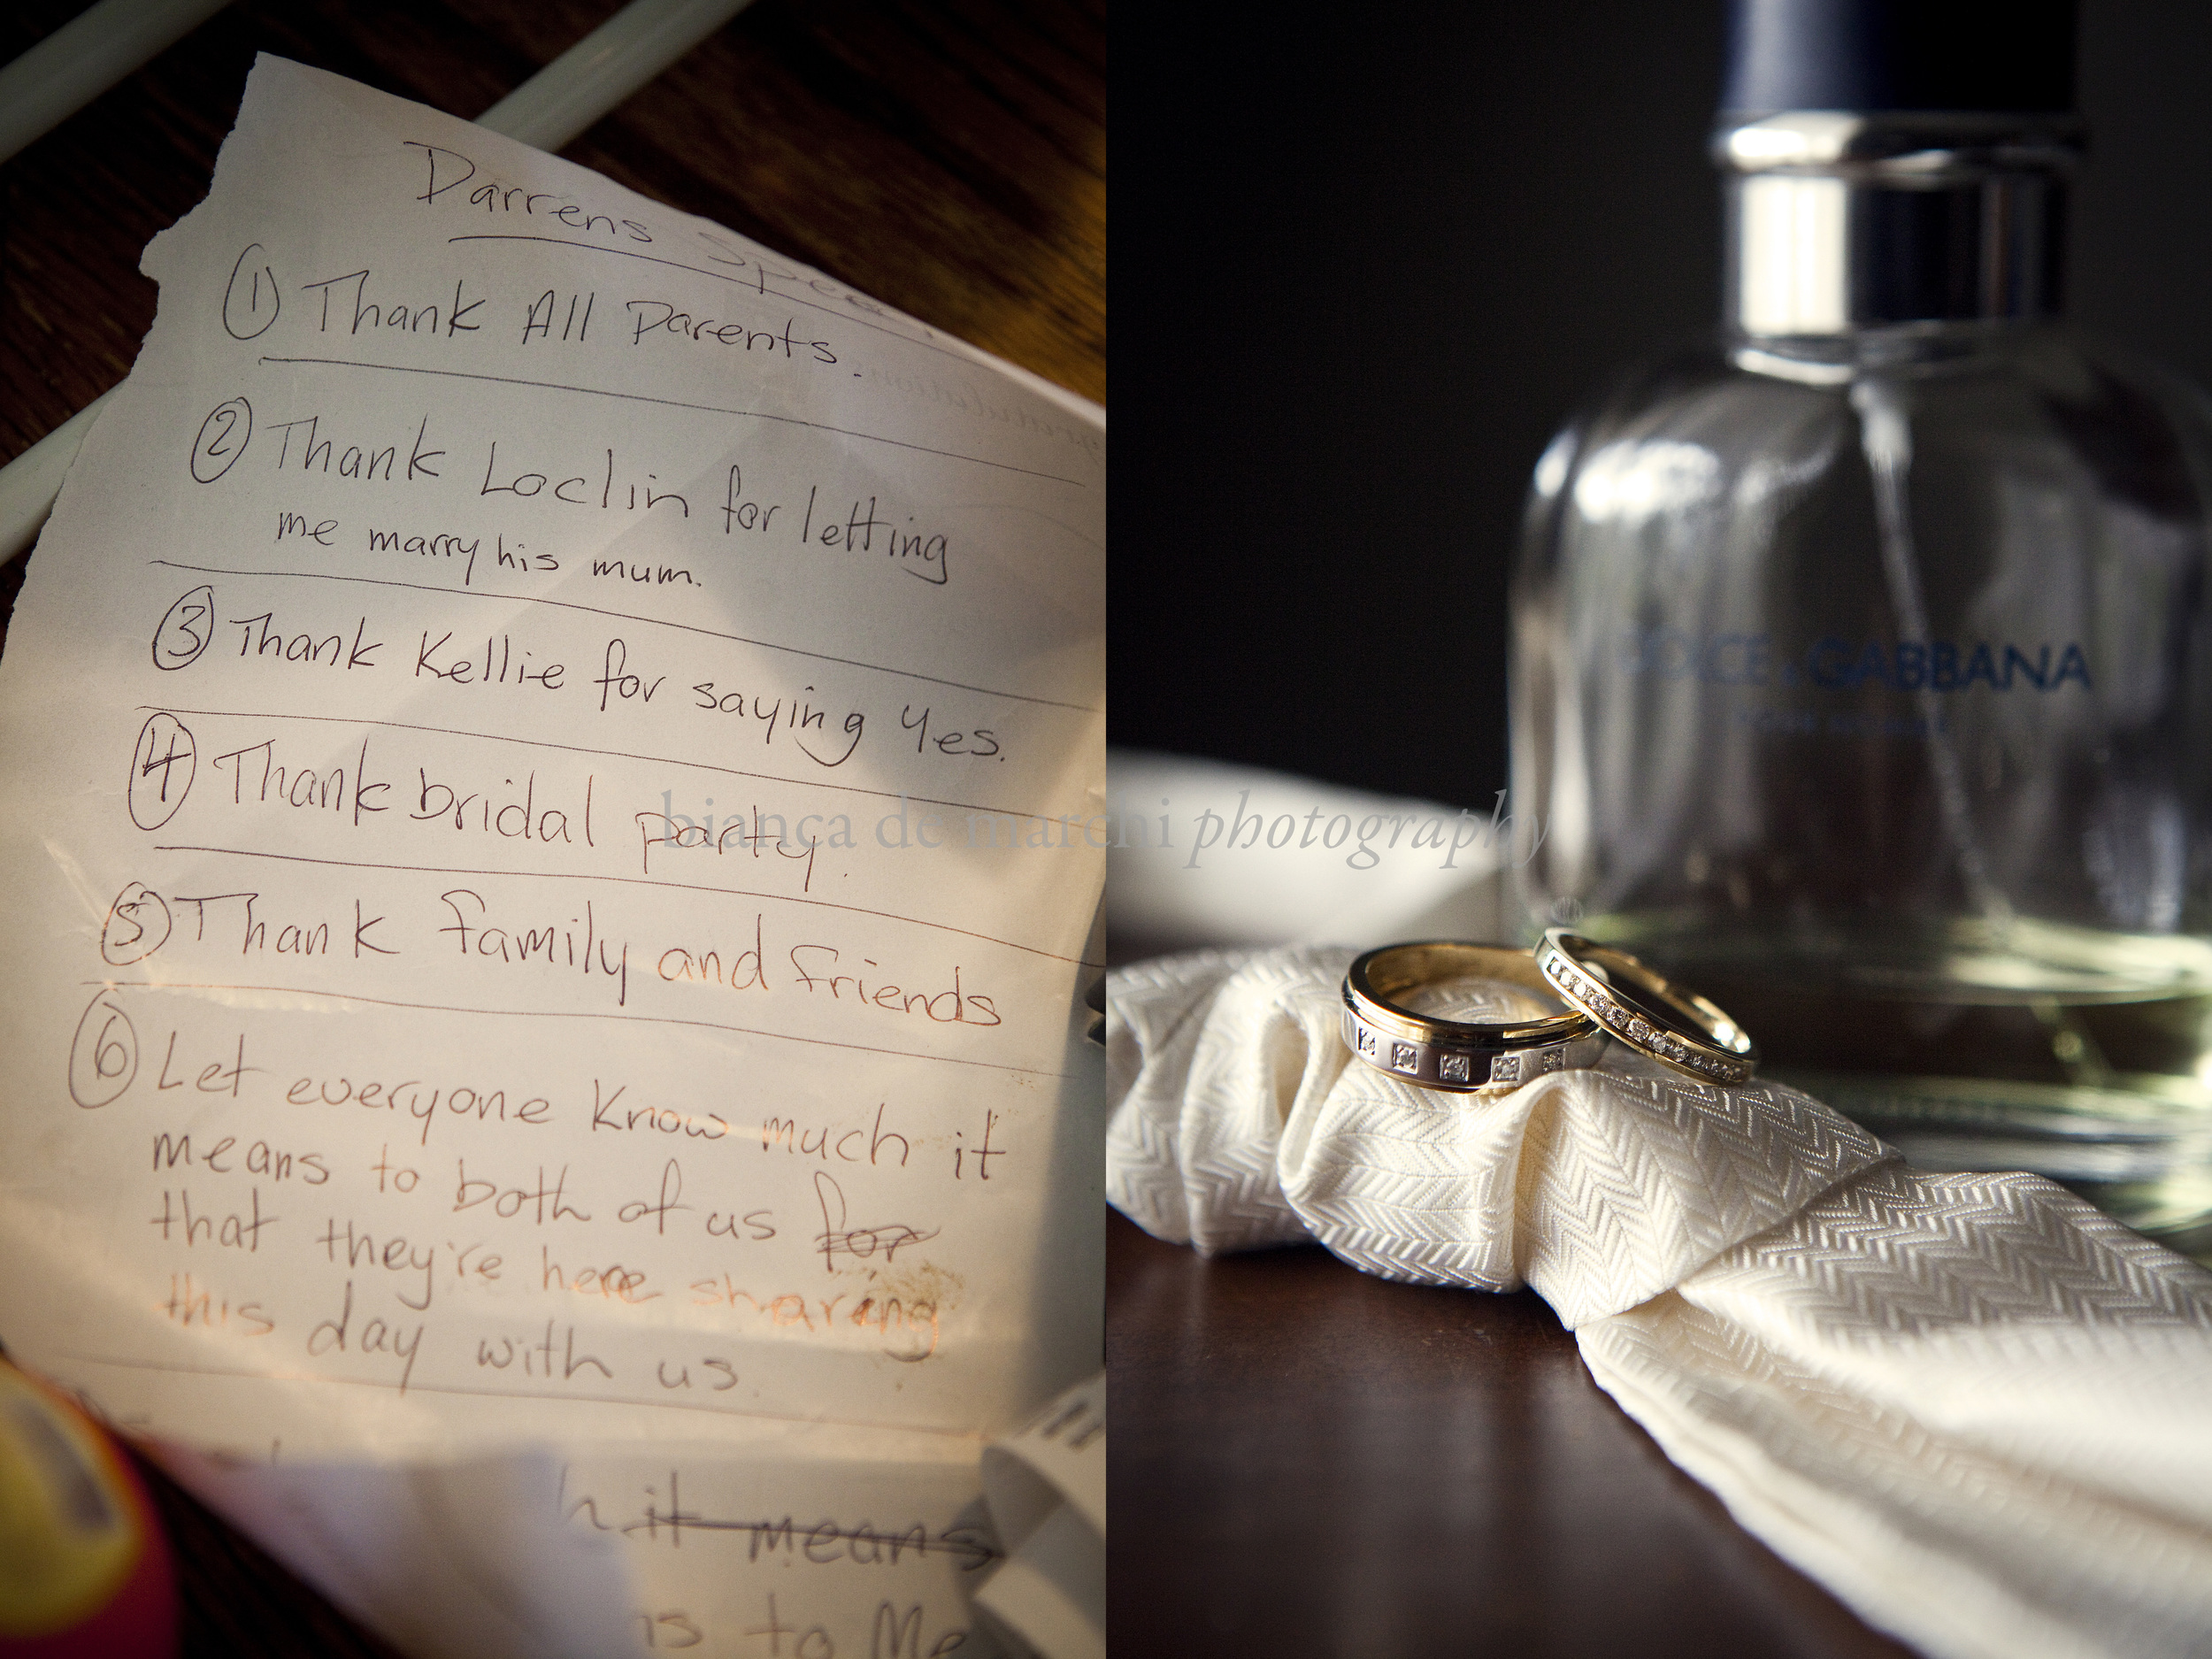 Darrens Speech
① Thank All Parents.
② Thank Loclin for letting
me marry his mum.
③ Thank Kellie for saying Yes.
④ Thank bridal party.
⑤ Thank family and friends
⑥ Let everyone know much it
means to both of us for
that they're here sharing
this day with us.
it means
to Me
bianca de marchi photography
DOLCE & GABBANA